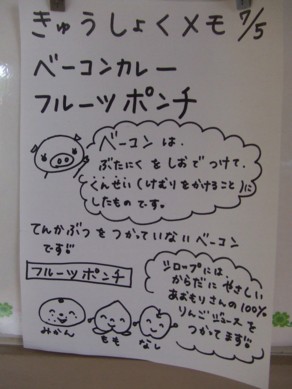 きゅうしょくメモ 7/5
ベーコンカレー
フルーツポンチ
ベーコンは、
ぶたにくをしおでつけて、
くんせい(けむりをかけること)に
したものです。
てんかぶつをつかていないベーコン
です!!
フルーツポンチ
シロープには
からだにやさしい
あおもりさんの100%
りんごジュースを
つかてます!!
みかん
もも
なし